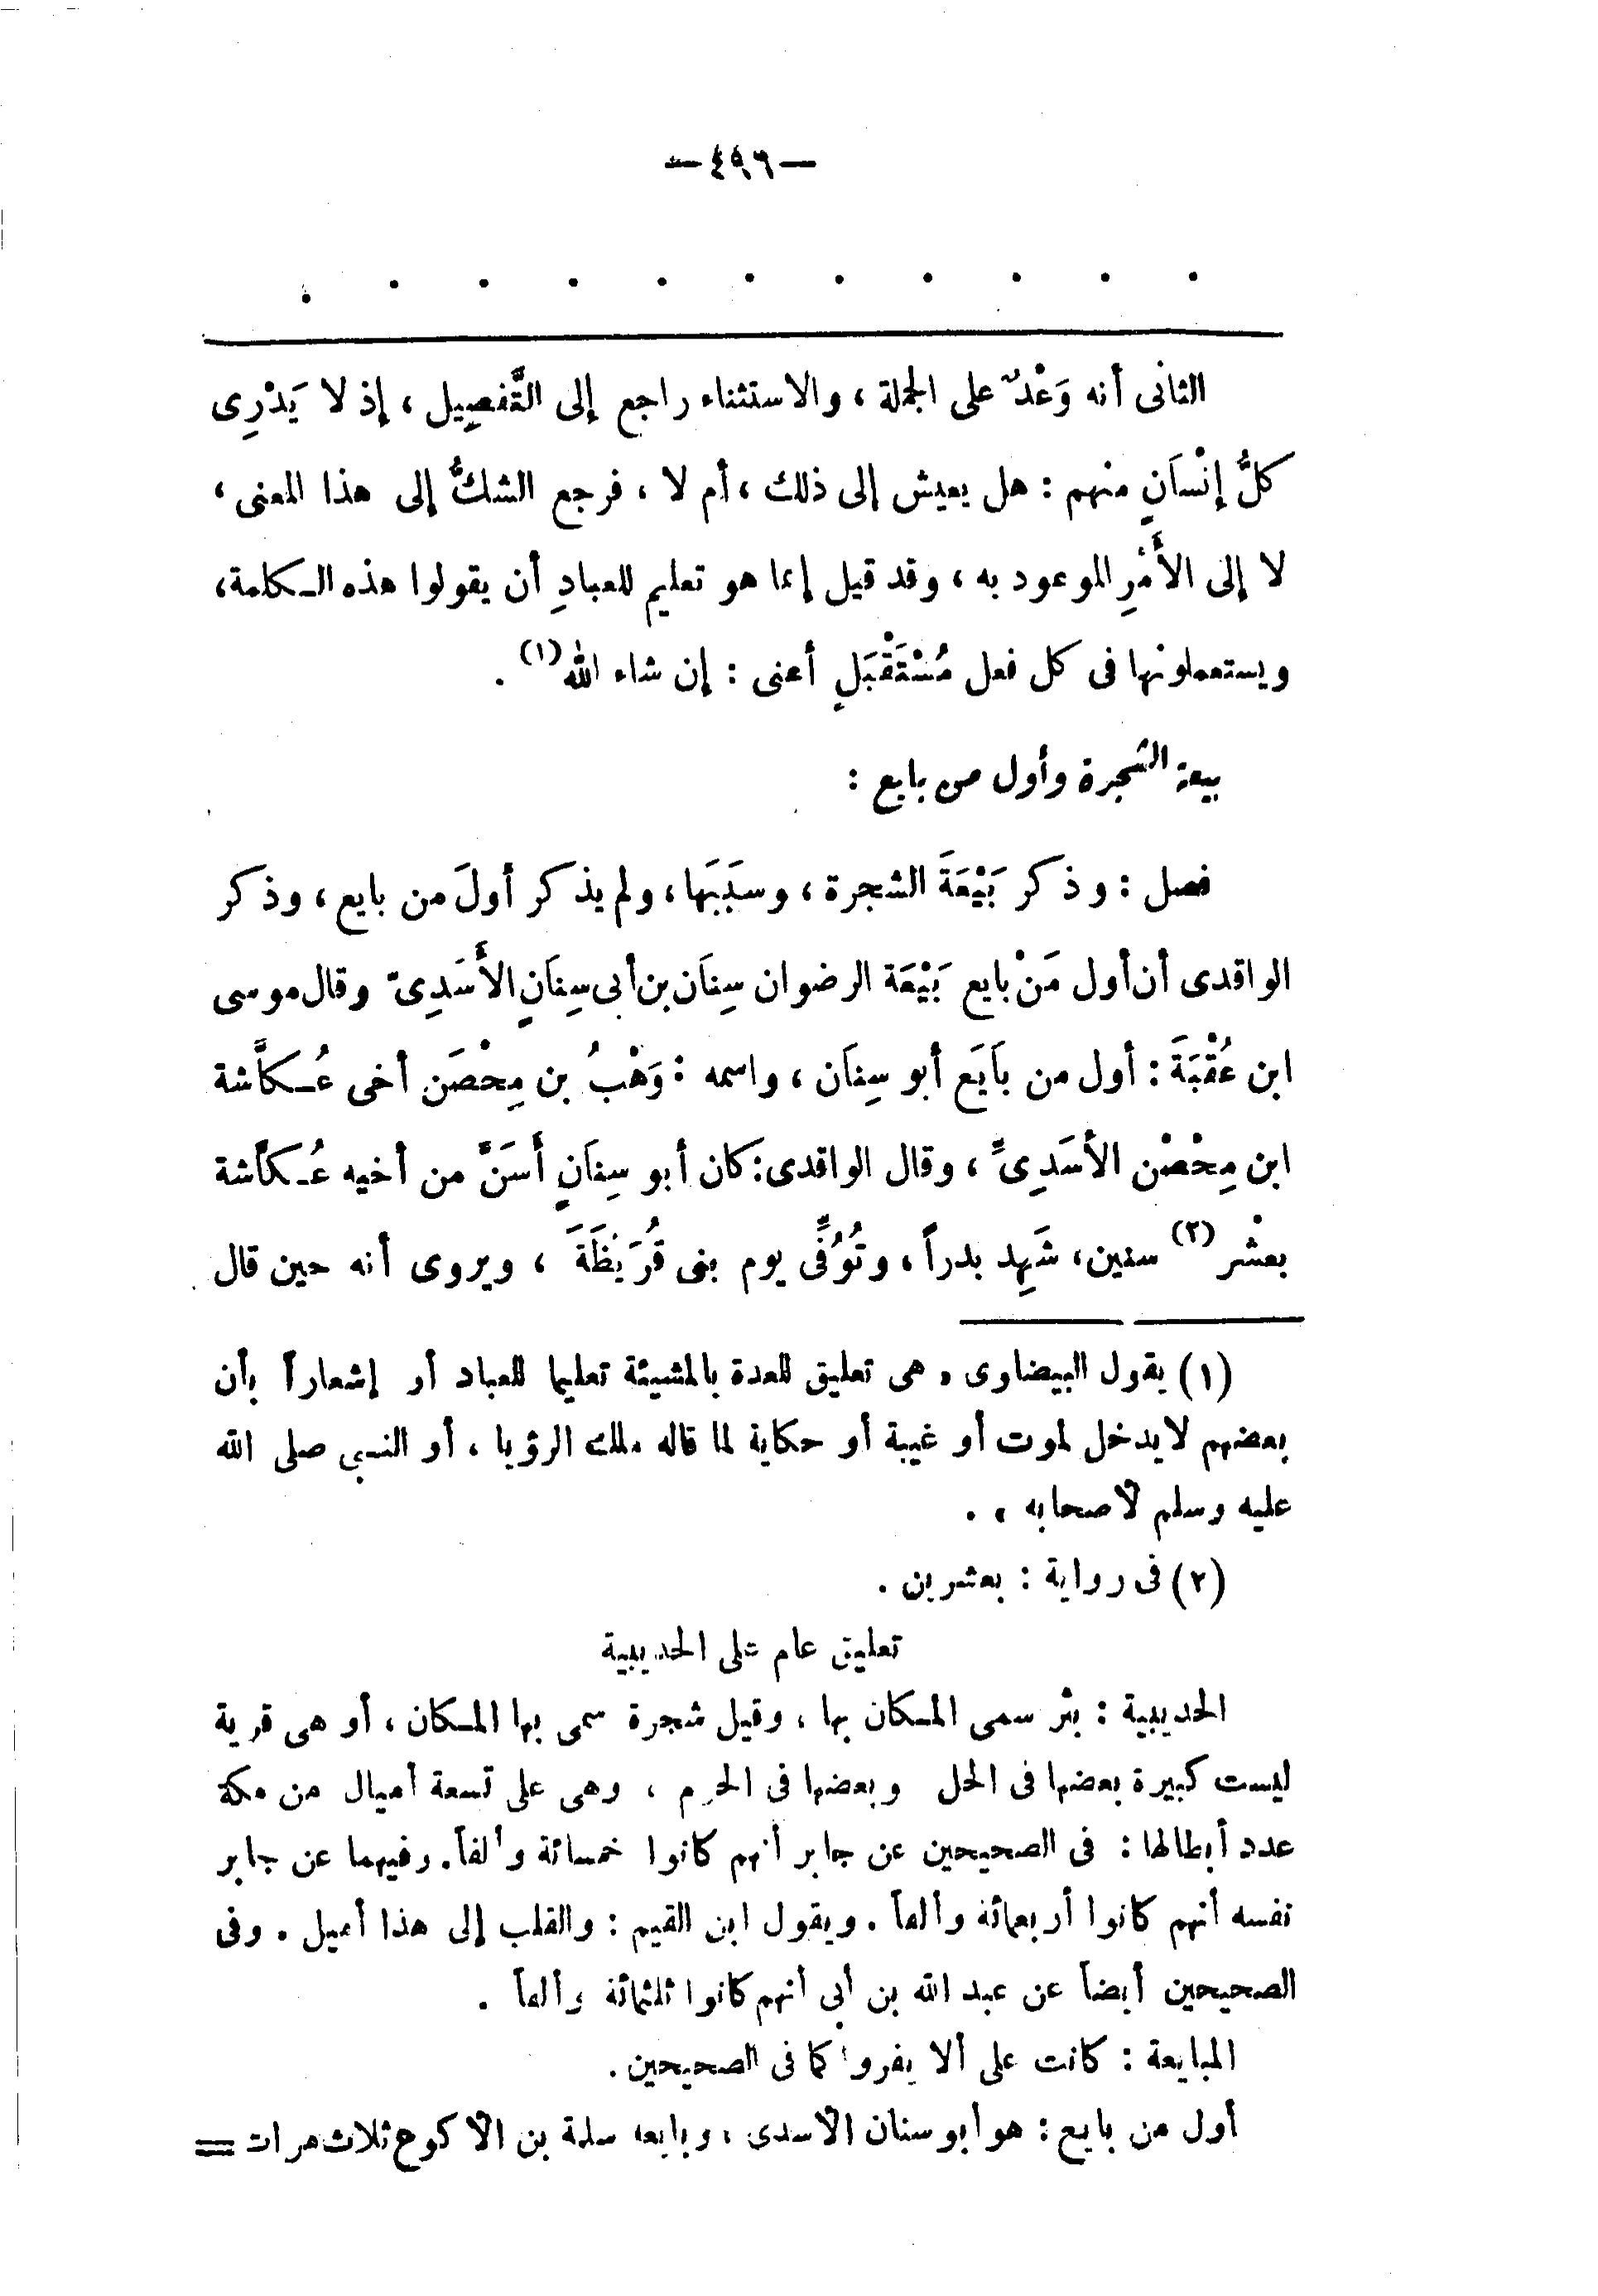 — ٤٩٦ —
. . . . . . . . . . .
الثانى أنه وَعْدٌ على الجملة ، والاستثناء راجع إلى التَّفصِيل ، إذ لا يَدْرِى
كلُّ إِنْسَانٍ منهم : هل يعيش إلى ذلك ، أم لا ، فرجع الشكُّ إلى هذا المعنى ،
لا إلى الأَمْرِ الموعود به ، وقد قيل إنما هو تعليم للعبادِ أن يقولوا هذه الـكلمة ،
ويستعملونها فى كل فعل مُسْتَقْبَلٍ أعنى : إن شاء الله (١) .
بيعة الشجرة وأول من بايع :
فصل : وذكر بَيْعَةَ الشجرة ، وسبَبَها ، ولم يذكر أولَ من بايع ، وذكر
الواقدى أن أول مَنْ بايع بَيْعَة الرضوان سِنَان بن أبى سِنَانٍ الأَسَدِىّ وقال موسى
ابن عُقْبَةَ : أول من بَايَع أبو سِنَان ، واسمه : وَهْبُ بن مِحْصَن أخى عُـكَّاشة
ابن مِحْصْن الأسَدِىِّ ، وقال الواقدى : كان أبو سِنَانٍ أَسَنَّ من أخيه عُـكَّاشة
بعشْر (٢) سنين ، شَهِد بدراً ، وتُوُفِّى يوم بنى قُرَيْظَةَ ، ويروى أنه حين قال
(١) يقول البيضاوى « هى تعليق للعدة بالمشيئة تعليما للعباد أو إشعاراً بأن
بعضهم لا يدخل لموت أو غيبة أو حكاية لما قاله ملك الرؤيا ، أو النبى صلى الله
عليه وسلم لأصحابه » .
(٢) فى رواية : بعشرين .
تعليق عام على الحديبية
الحديبية : بئر سمى المـكان بها ، وقيل شجرة سمى بها المـكان ، أو هى قرية
ليست كبيرة بعضها فى الحل وبعضها فى الحرم ، وهى على تسعة أميال من مكة
عدد أبطالها : فى الصحيحين عن جابر أنهم كانوا خمسائة وألفاً . وفيهما عن جابر
نفسه أنهم كانوا أربعمائة وألفاً . ويقول ابن القيم : والقلب إلى هذا أميل . وفى
الصحيحين أيضاً عن عبد الله بن أبى أنهم كانوا ثلثمائة وألفاً .
المبايعة : كانت على ألا يفروا كما فى الصحيحين .
أول من بايع : هو أبو سنان الأسدى ، وبايعه سلمة بن الأكوع ثلاث مرات =